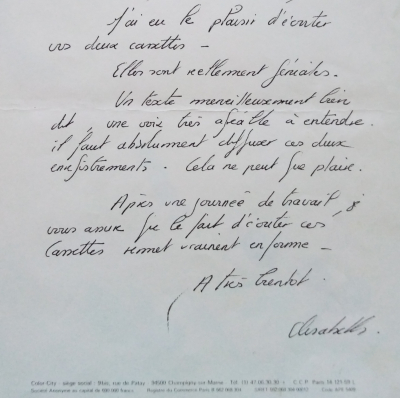 J'ai eu le plaisir d'écouter
vos deux cassettes -
Elles sont réellement géniales.
Un texte merveilleusement bien
dit, une voix très agréable à entendre.
il faut absolument diffuser ces deux
enregistrements. Cela ne peut que plaire.
Après une journée de travail, je
vous assure que le fait d'écouter ces
cassettes remet vraiment en forme -
A très bientôt.
Elisabeth.
Color City - siège social - 8bis, rue de 94500 Champigny sur Marne - Tél. C.C.P. Paris
Société Anonyme au capital de 500 000 francs Registre du Commerce Paris